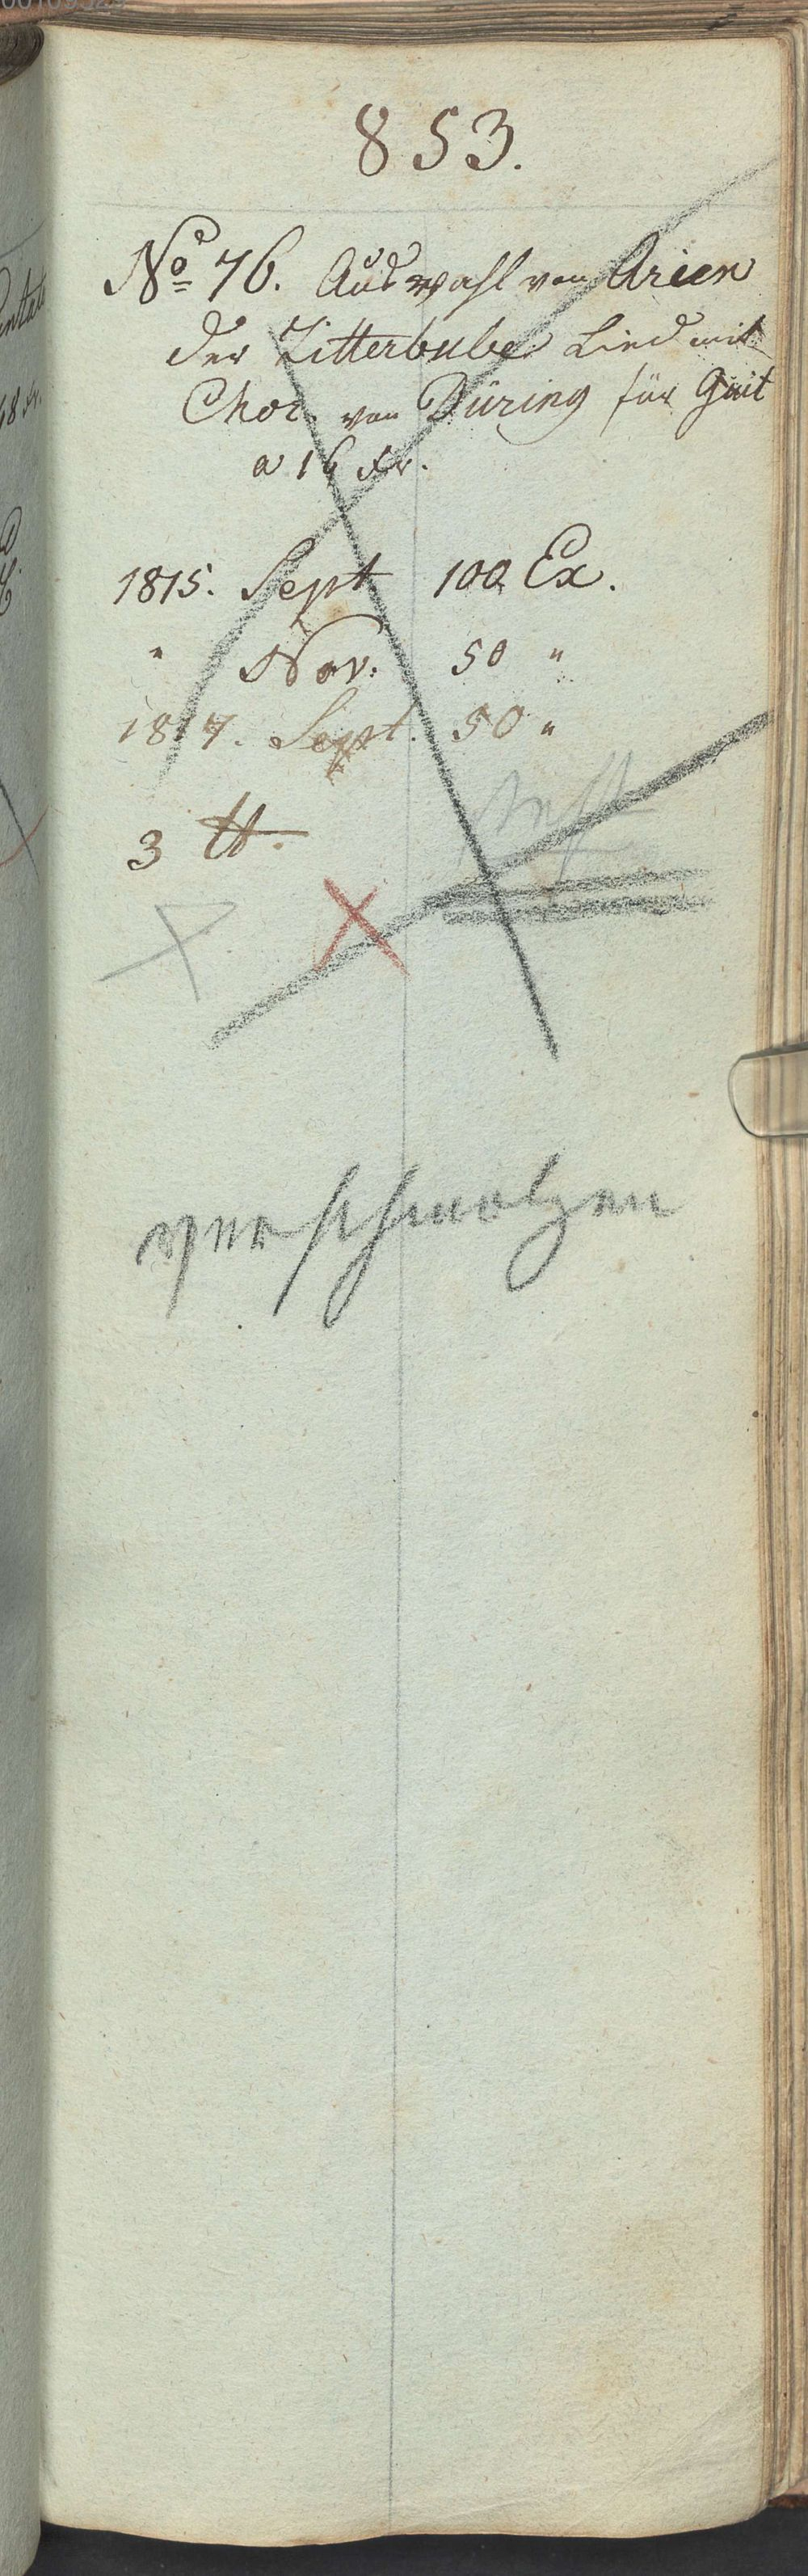 853.
No 76. Auswahl von Arien
der Zitterbube Lied mit
Chor. von Düring für Guit
a 16 Xr.
1815. Sept 100 Ex.
" Nov. 50 "
1817. Sept. 50 "
3 tt.
verschmolzen